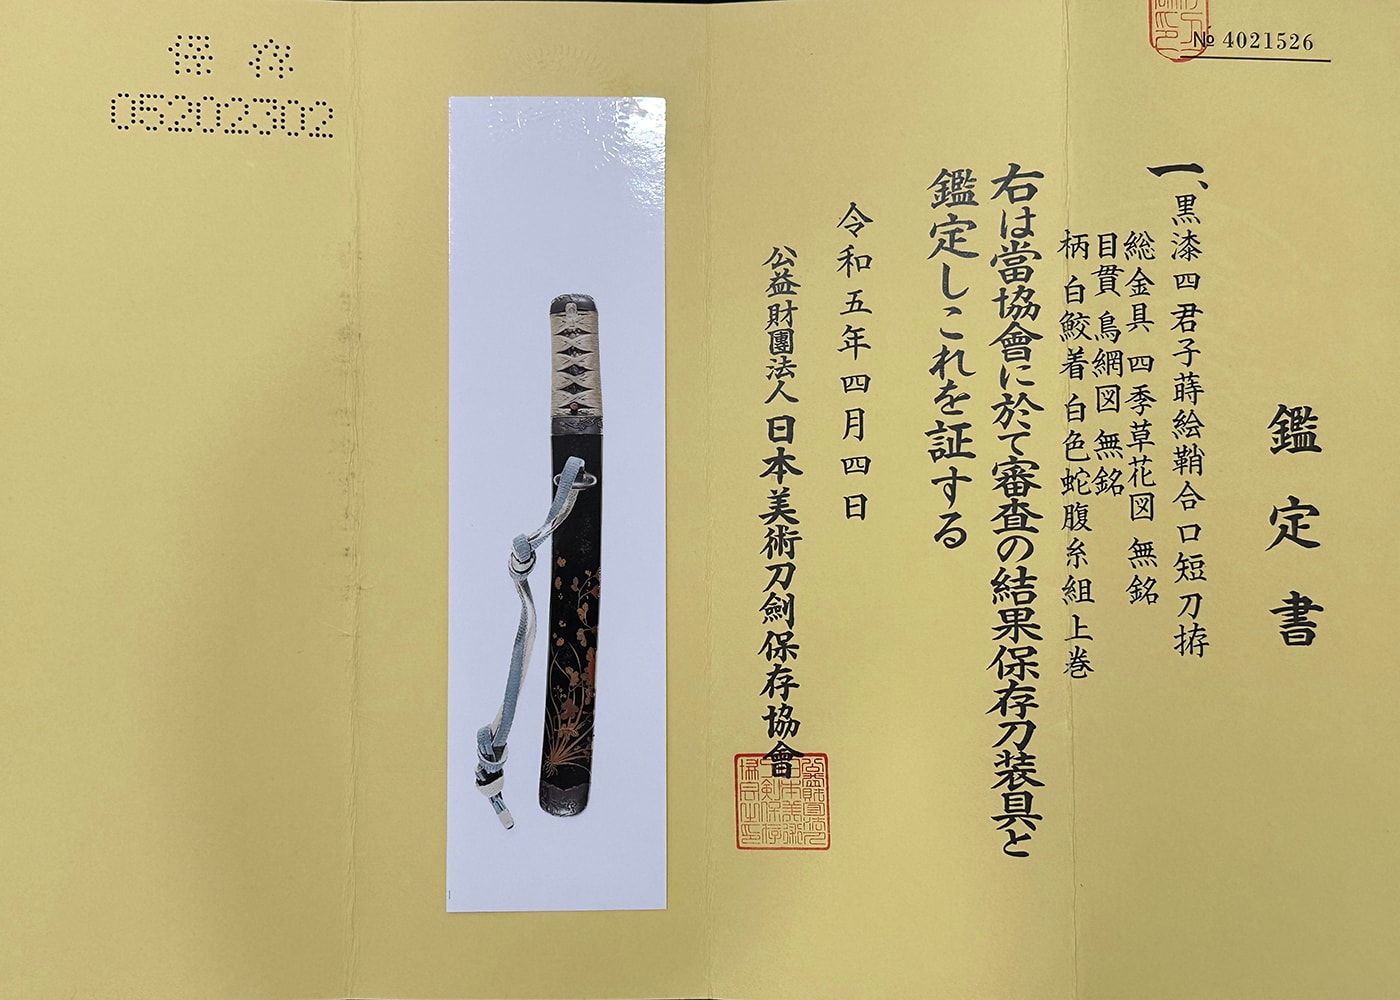 № 4021526
鑑定書
一、黒漆四君子蒔絵鞘合口短刀拵
総金具 四季草花図 無銘
目貫 鳥網図 無銘
柄 白鮫着 白色蛇腹糸組上巻
右は當協會に於て審査の結果保存刀装具と
鑑定しこれを証する
令和五年四月四日
公益財團法人 日本美術刀劍保存協會
保存
05202302